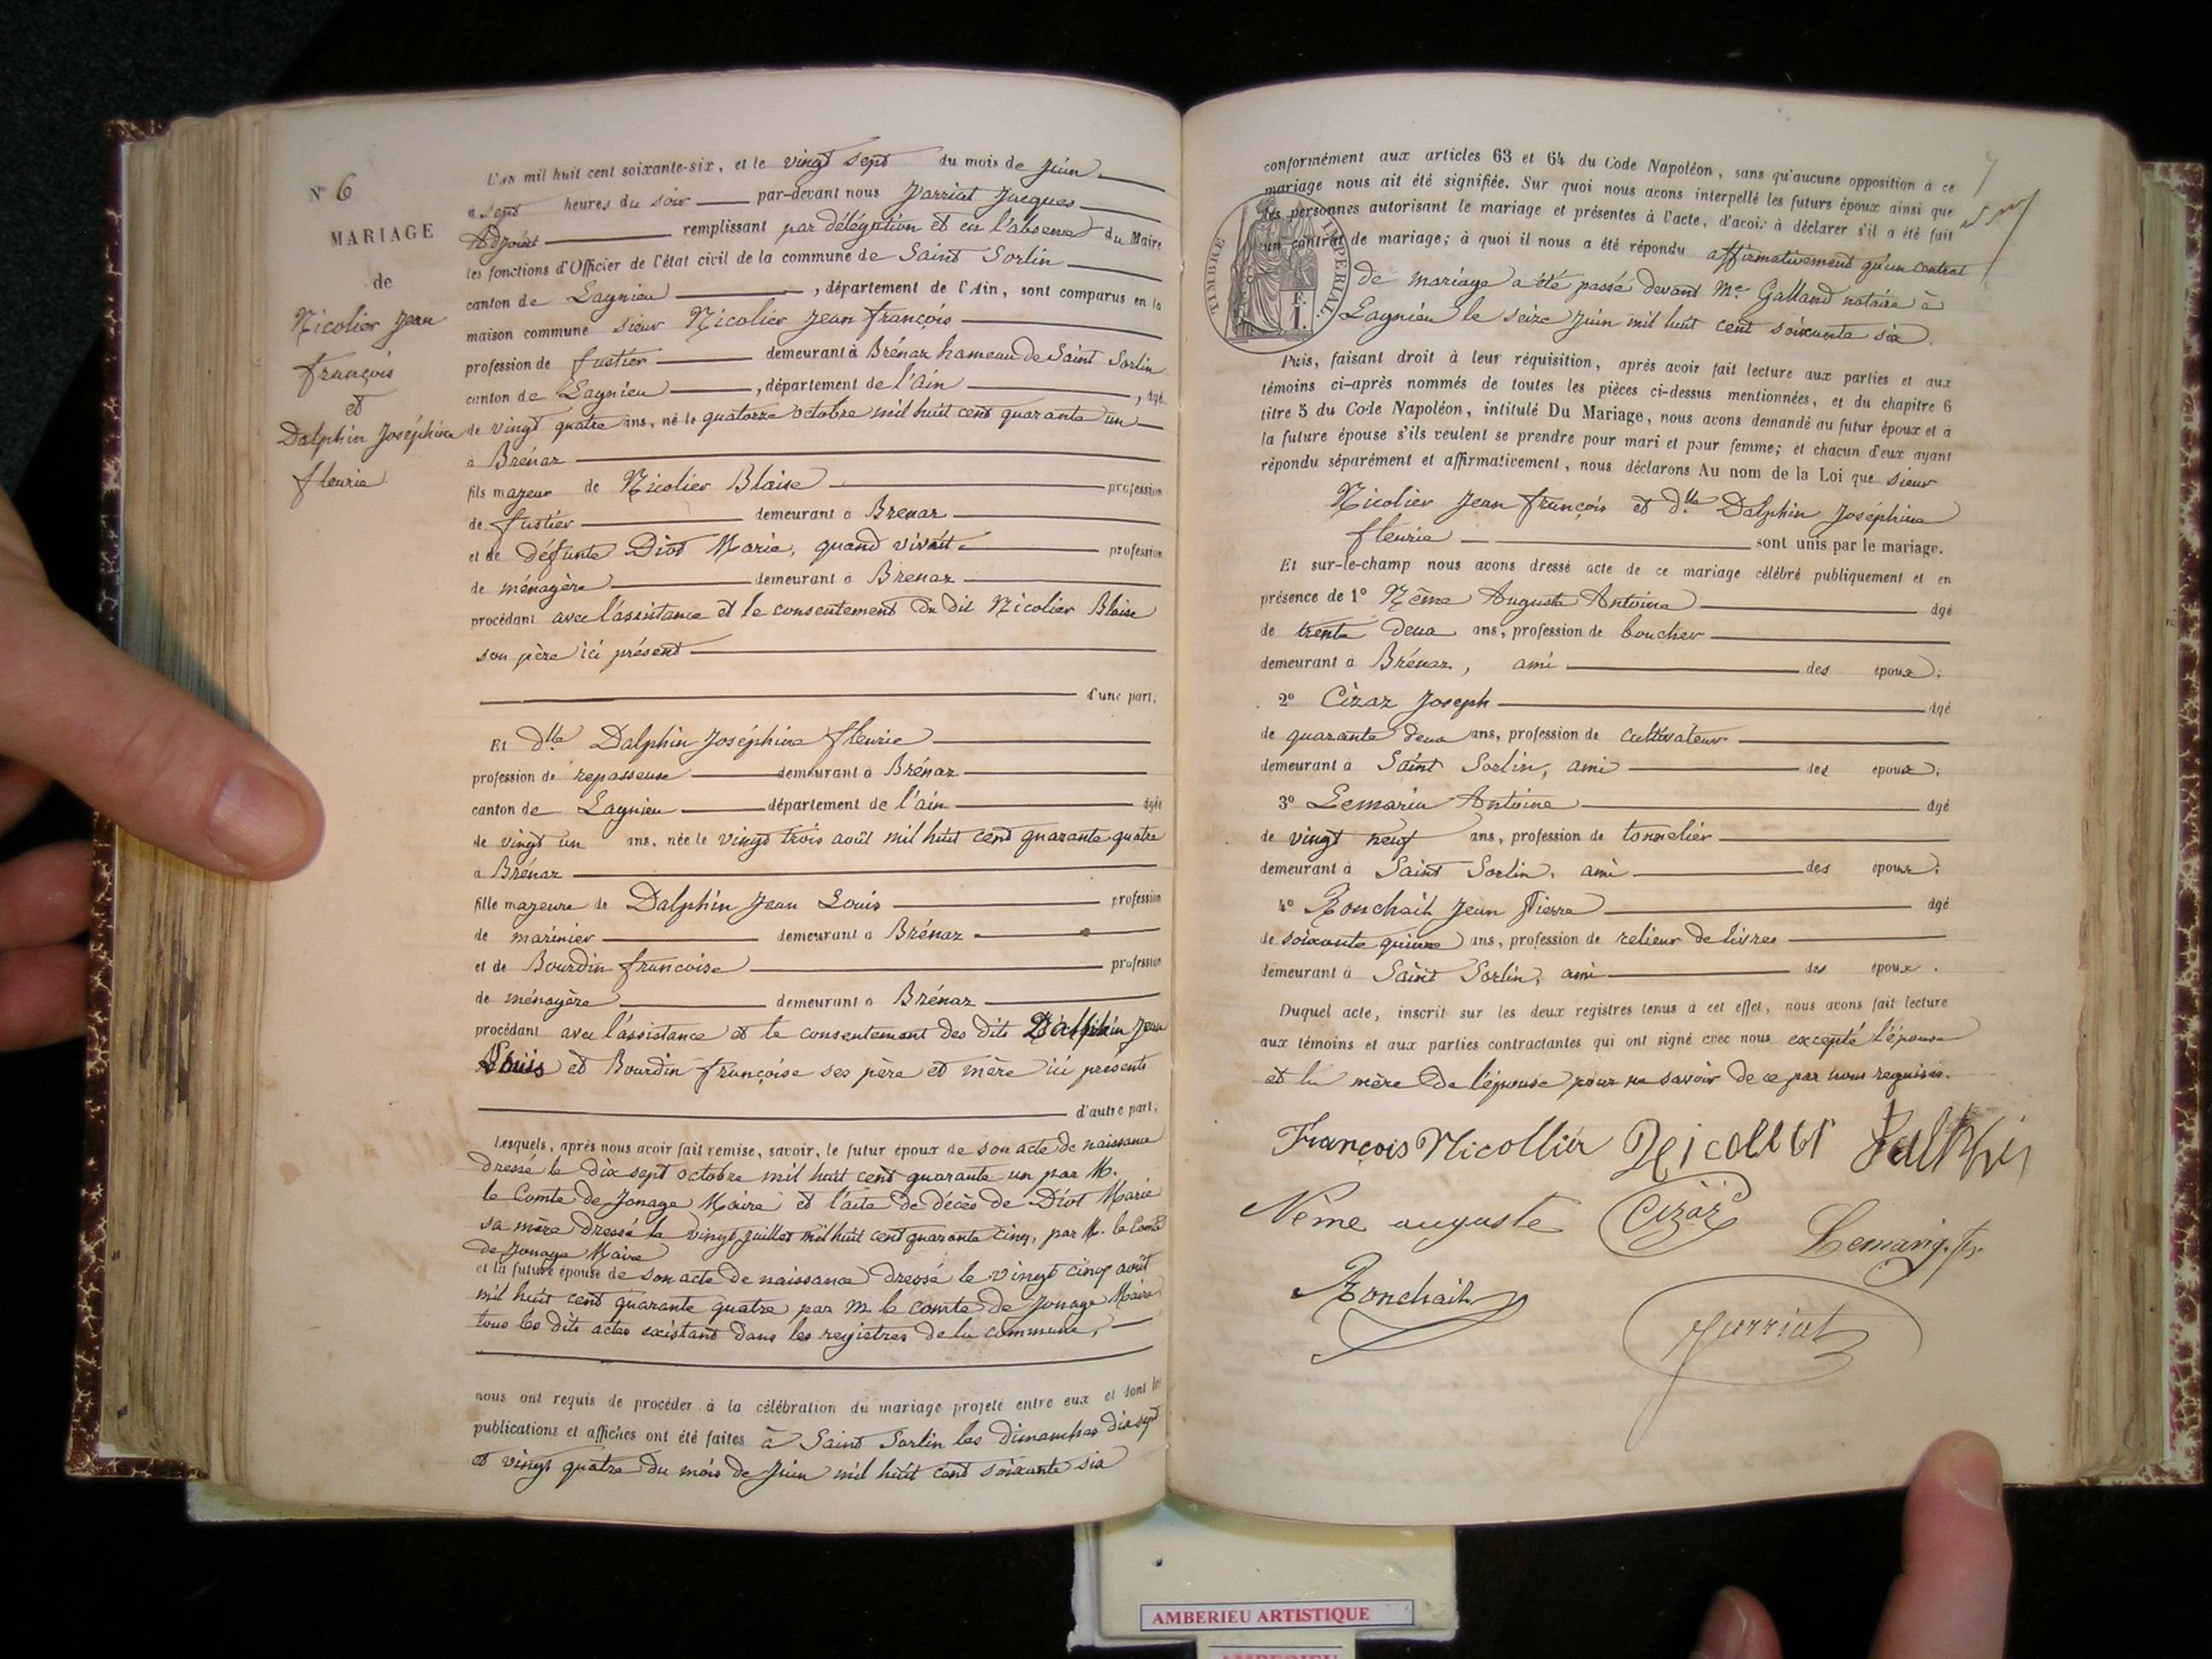 N° 6
MARIAGE
de
Nicolier Jean
françois
et
Dalphin Joséphine
fleurie
L'an mil huit cent soixante-six, et le vingt sept du mois de Juin
à sept heures du soir par-devant nous Jarriat Jacques
Adjoint remplissant par délégation et en l'absence du Maire
les fonctions d'Officier de l'état civil de la commune de Saint Sorlin
canton de Lagnieu, département de l'Ain, sont comparus en la
maison commune sieur Nicolier Jean françois
profession de fustier demeurant à Brénaz hameau de Saint Sorlin
canton de Lagnieu, département de l'ain, âgé
de vingt quatre ans, né le quatorze octobre mil huit cent quarante un
à Brénaz
fils majeur de Nicolier Blaise profession
de fustier demeurant à Brenaz
et de défunte Diot Marie, quand vivait profession
de ménagère demeurant à Brenaz
procédant avec l'assistance et le consentement du dit Nicolier Blaise
son père ici présent
d'une part.
Et dlle Dalphin Joséphine fleurie
profession de repasseuse demeurant à Brénaz
canton de Lagnieu département de l'ain âgée
de vingt un ans, née le vingt trois août mil huit cent quarante quatre
à Brénaz
fille majeure de Dalphin Jean Louis profession
de marinier demeurant à Brénaz
et de Bourdin francoise profession
de ménagère demeurant à Brénaz
procédant avec l'assistance et le consentement des dits Dalphin Jean
Louis et Bourdin françoise ses père et mère ici présents
d'autre part;
Lesquels, après nous avoir fait remise, savoir, le futur époux de son acte de naissance
dressé le dix sept octobre mil huit cent quarante un par M.
le Comte de Jonage Maire et l'acte de décès de Diot Marie
sa mère dressé le vingt juillet mil huit cent quarante cinq, par M. le Comte
de Jonage Maire
et la future épouse de son acte de naissance dressé le vingt cinq août
mil huit cent quarante quatre par m le comte de Jonage Maire
tous les dits actes existant dans les registres de la commune,
nous ont requis de procéder à la célébration du mariage projeté entre eux et dont les
publications et affiches ont été faites à Saint Sorlin les dimanches dix sept
et vingt quatre du mois de Juin mil huit cent soixante six
conformément aux articles 63 et 64 du Code Napoléon, sans qu'aucune opposition à ce
mariage nous ait été signifiée. Sur quoi nous avons interpellé les futurs époux ainsi que
les personnes autorisant le mariage et présentes à l'acte, d'avoir à déclarer s'il a été fait
un contrat de mariage; à quoi il nous a été répondu affirmativement qu'un contrat
de mariage a été passé devant Me Galland notaire à
Lagnieu le seize Juin mil huit cent soixante six.
TIMBRE IMPÉRIAL
Puis, faisant droit à leur réquisition, après avoir fait lecture aux parties et aux
témoins ci-après nommés de toutes les pièces ci-dessus mentionnées, et du chapitre 6
titre 5 du Code Napoléon, intitulé Du Mariage, nous avons demandé au futur époux et à
la future épouse s'ils veulent se prendre pour mari et pour femme; et chacun d'eux ayant
répondu séparément et affirmativement, nous déclarons Au nom de la Loi que sieur
Nicolier Jean françois et dlle Dalphin Joséphine
fleurie sont unis par le mariage.
Et sur-le-champ nous avons dressé acte de ce mariage célébré publiquement et en
présence de 1° Nême Auguste Antoine âgé
de trente deux ans, profession de boucher
demeurant à Brénaz, ami des époux;
2° Cizaz Joseph âgé
de quarante deux ans, profession de cultivateur
demeurant à Saint Sorlin, ami des époux;
3° Lemarin Antoine âgé
de vingt neuf ans, profession de tonnelier
demeurant à Saint Sorlin, ami des époux;
4° Ronchail Jean Pierre âgé
de soixante quinze ans, profession de relieur de livres
demeurant à Saint Sorlin, ami des époux.
Duquel acte, inscrit sur les deux registres tenus à cet effet, nous avons fait lecture
aux témoins et aux parties contractantes qui ont signé avec nous excepté l'épouse
et la mère de l'épouse pour ne savoir de ce par nous requises.
François Nicollier Nicolier Dalphin
Nême auguste Cizaz
Ronchail Jarriat
AMBERIEU ARTISTIQUE
AMBERIEU